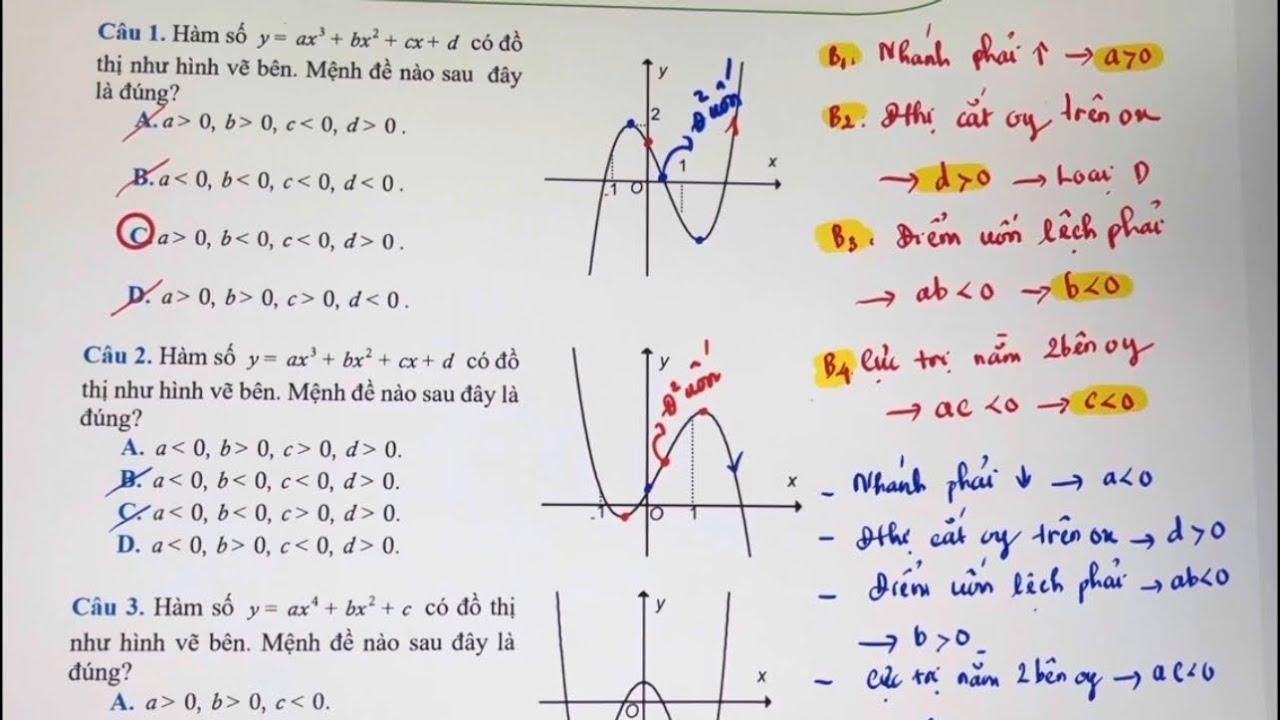 Câu 1. Hàm số y = ax³ + bx² + cx + d có đồ
thị như hình vẽ bên. Mệnh đề nào sau đây
là đúng?
A. a > 0, b > 0, c < 0, d > 0.
B. a < 0, b < 0, c < 0, d < 0.
C a > 0, b < 0, c < 0, d > 0.
D. a > 0, b > 0, c > 0, d < 0.
y
2
-1
O
1
x
đ² uốn
B1. Nhánh phải ↑ → a>0
B2. Đthị cắt oy trên ox
→ d>0 → Loại D
B3. Điểm uốn lệch phải
→ ab<0 → b<0
B4. Cực trị nằm 2bên oy
→ ac<0 → c<0
Câu 2. Hàm số y = ax³ + bx² + cx + d có đồ
thị như hình vẽ bên. Mệnh đề nào sau đây là
đúng?
A. a < 0, b > 0, c > 0, d > 0.
B. a < 0, b < 0, c < 0, d > 0.
C. a < 0, b < 0, c > 0, d > 0.
D. a < 0, b > 0, c < 0, d > 0.
y
đ² uốn
x
-1
O
1
- Nhánh phải ↓ → a<0
- Đthị cắt oy trên ox → d>0
- Điểm uốn lệch phải → ab<0
→ b>0
- Cực trị nằm 2bên oy → ac<0
Câu 3. Hàm số y = ax⁴ + bx² + c có đồ thị
như hình vẽ bên. Mệnh đề nào sau đây là
đúng?
A. a > 0, b > 0, c < 0.
y
x
O